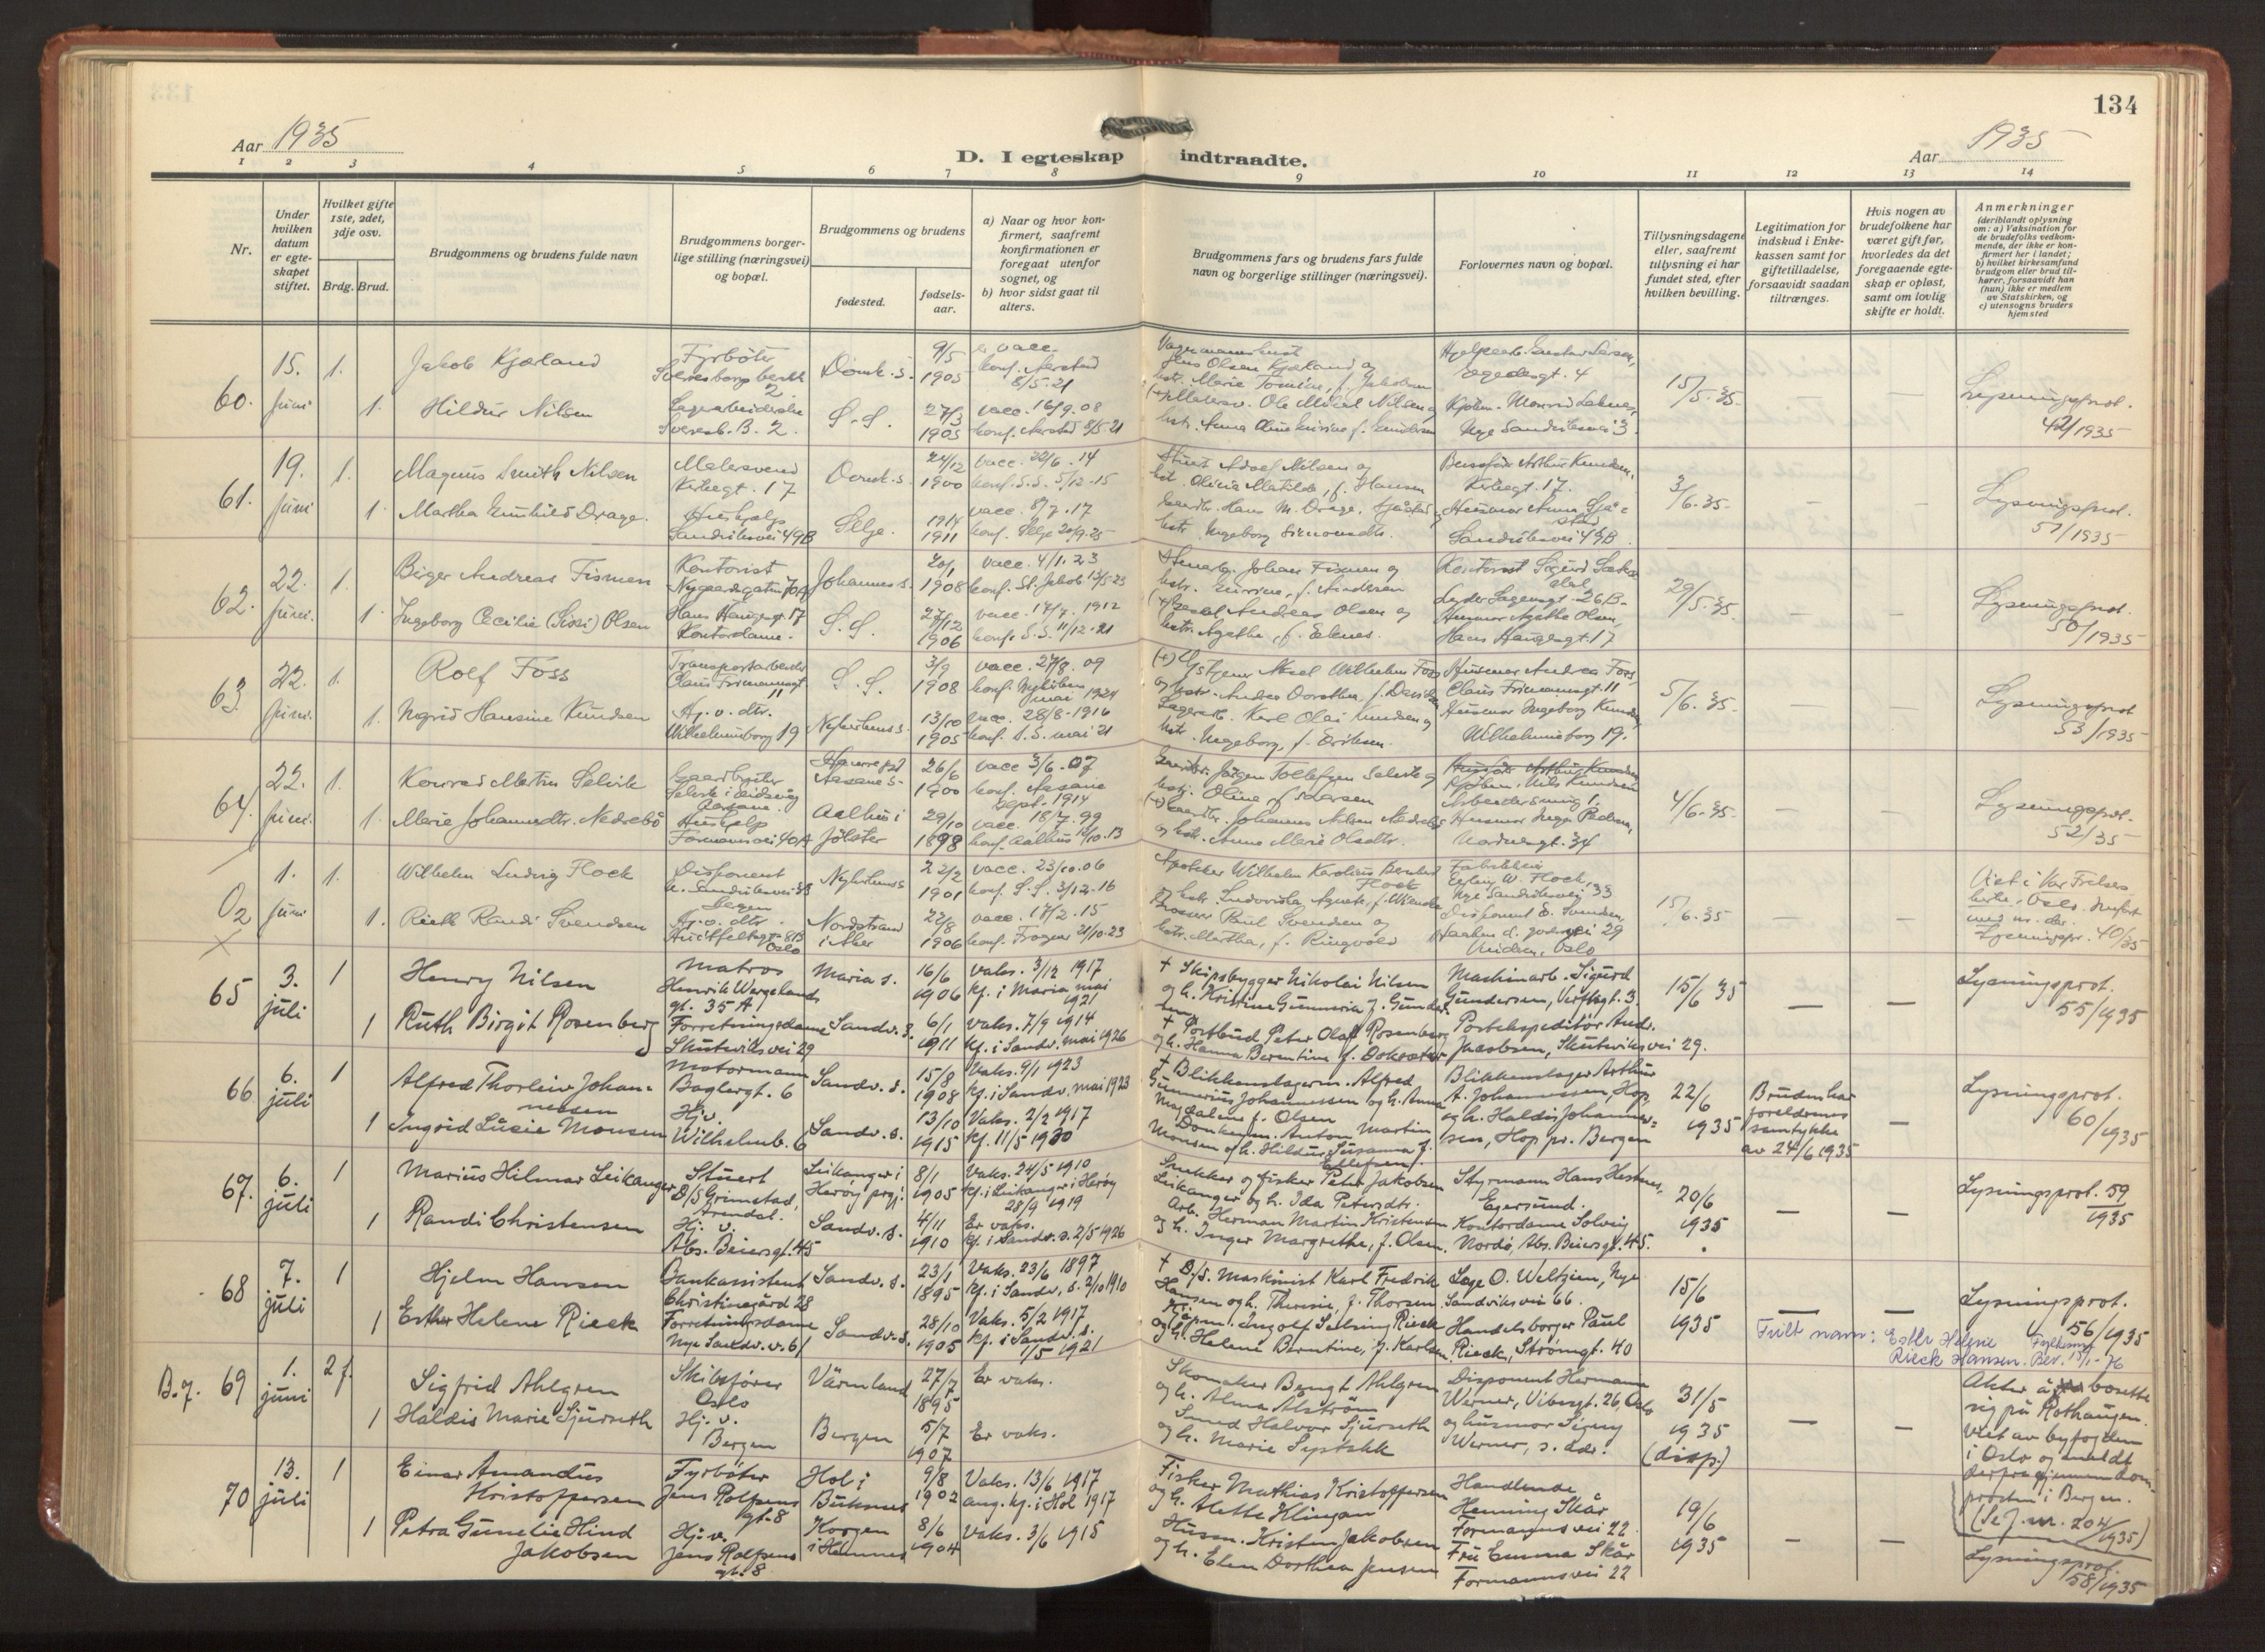 134
Aar 1935
D. I egteskap indtraadte.
Aar 1935
1 2 3 4 5 6 7 8 9 10 11 12 13 14
Nr.
Under hvilken datum er egteskapet stiftet.
Hvilket gifte 1ste, 2det, 3dje osv.
Brdg. Brud.
Brudgommens og brudens fulde navn
Brudgommens borgerlige stilling (næringsvei) og bopæl.
Brudgommens og brudens
fødested.
fødselsaar.
a) Naar og hvor konfirmert, saafremt konfirmationen er foregaat utenfor sognet, og
b) hvor sidst gaat til alters.
Brudgommens fars og brudens fars fulde navn og borgerlige stillinger (næringsvei).
Forlovernes navn og bopæl.
Tillysningsdagene eller, saafremt tillysning ei har fundet sted, efter hvilken bevilling.
Legitimation for indskud i Enkekassen samt for giftetilladelse, forsaavidt saadan tiltrænges.
Hvis nogen av brudefolkene har været gift før, hvorledes da det foregaaende egteskap er opløst, samt om lovlig skifte er holdt.
Anmerkninger
(deriblandt oplysning om: a) Vaksination for de brudefolks vedkommende, der ikke er konfirmert her i landet; b) hvilket kirkesamfund brudgom eller brud tilhører, forsaavidt han (hun) ikke er medlem av Statskirken, og c) utensogns bruders hjemsted
60. 15. juni 1. Jakob Kjørland Fyrbøter Domk.s. 9/5 1905 er vacc. konf. Aarstad 8/5-21
Jens Olsen Kjørland og hstr. Marie Tomine, f. Jakobsen
15/5-35 — — Lysningsprot. 42/1935
1. Hildur Nilsen Sveresb. B. 2. S.S. 27/3 1905 vacc. 16/9.08 konf. Aarstad 8/5-21
61. 19. juni 1. Magnus Smith Nilsen Malersvend Kirkegt. 17 Domk.s. 24/12 1900 vacc. 22/6.14 konf. S.S. 5/12-15
Stuert Adolf Nilsen og hst. Olivia Matilde, f. Hansen
Kirkegt. 17.
3/6-35- — — Lysningsprot. 51/1935
1. Martha Gunhild Drage. Hushjelp Sandviksvei 49B Selje. 1911 vacc. 8/7.17 konf. Selje 20/9-25
Gaardbr. Hans M. Drage, hstr. Ingeborg Simonsdtr.
Sandviksvei 49B
62. 22. juni. 1. Birger Andreas Fismen Kontorist Nygaardsgaten 70A Johannes s. 20/1 1908 vacc. 4/1.23 konf. St. Jakob 13/5-23
Johan Fismen og
Lyder Sagensgt. 26B-
29/5-35. — — Lysningsprot. 50/1935
1. Ingeborg Cecilie (Sissi) Olsen Hans Haugesgt. 17 Kontordame. S.S. 27/12 1906 vacc. 17/7.1912 konf. S.S. 11/12-21
Andreas Olsen og hstr. Agathe, f. Eknes.
Husmor Agathe Olsen, Hans Haugesgt. 17
63. 22. juni. 1. Rolf Foss Transportarbeider Claus Frimannsgt 11 S.S. 3/9 1908 vacc. 27/8.09 konf. Nykirken mai 1924
Aksel Wilhelm Foss og hstr. Andrea Dorothea, f. Davidsen
Husmor Andrea Foss, Claus Frimannsgt. 11
5/6-35- — — Lysningsprot. 53/1935
1. Ingrid Hansine Knudsen Hj. v. dtr. Wilhelmineborg 19 Nykirkens s. 13/10 1905 vacc. 28/8-1916 konf. S.S. mai 21
Lagerarb. Karl Olai Knudsen og hstr. Ingeborg, f. Eriksen.
Husmor Ingeborg Knudsen, Wilhelmineborg 19.
64. 22. juni. 1. Konrad Martin Selvik Gaardbruker Selvik i Eidsvåg Aasane Aasane s- 26/6 1900 vacc 3/6.07 konf. Aasane sept. 1914
Gaardbr. Jørgen Tollefsen Selvik og hstr. Oline, f. Larsen
Kjøbm. Nils Knudsen
4/6-35- — — Lysningsprot. 52/35
1. Marie Johannesdtr. Nedrebø Hushjelp Formannsvei 40A Aalhus i Jølster 29/10 1898 vacc. 18/7.99 konf. Aalhus 12/10.13
Johannes Nilsen Nedrebø og hstr. Anne Marie Olsdtr.
Nordnesgt. 34
O2 1. juni 1. Wilhelm Ludvig Flock Disponent Nykirkens s 22/2 1901 vacc. 23/10.06 konf. S.S. 3/12-16
Apoteker Wilhelm Karolius Bernhard Flock
Nye Sandviksvei 33
15/6-35 Viet i Vor Frelsers kirke, Oslo. Innført uten nr. der. Lysningspr. 40/35
1. Rieth Randi Svendsen Hj.v. dtr. Huitfeltsgt. 8B Oslo Nordstrand i Aker 22/8 1906 vacc. 17/2.15 konf. Frogner 21/10-23
Paul Svendsen og hstr. Martha, f. Ringvold
Disponent E. Svendsen,
65 3. juli 1 Henry Nilsen Matros Henrik Wergelands gt. 35 A. Maria s. 16/6 1906 Vaks. 3/12 1917 kf. i Maria mai 1921
† Skipsbygger Nikolai Nilsen og h. Kristine Gunnaria f. Gundersen
Maskinarb. Sigurd Gundersen, Verftsgt. 3.
15/6 35 — — Lysningsprot. 55/1935
1 Ruth Birgit Rosenberg Forretningsdame Skuteviksvei 29 Sandv. s. 6/1 1911 Vaks. 7/9 1914 kf. i Sandv. mai 1926
† Postbud Peter Olaf Rosenberg og h. Hanna Berentine f. Dokseter
Postekspeditör Andr. Jacobsen, Skuteviksvei 29.
66 6. juli 1 Alfred Thorleiv Johannessen Motormann Baglergt. 6 Sandv. s. 15/8 1908 Vaks. 9/1 1923 kf. i Sandv. mai 1923
† Blikkenslagerm. Alfred Gunnerius Johannessen og h. Anna Magdalene f. Olsen
Blikkenslager Arthur A. Johannessen, Hop, og h. Haldis Johannessen, Hop pr. Bergen
22/6 1935 Bruden har foreldrenes samtykke av 24/6 1935 — Lysningsprot. 60/1935
1 Ingrid Lusie Monsen Hj.v. Wilhelmb. 6 Sandv. s. 13/10 1915 Vaks. 2/2 1917 kf. 11/5 1930
Donkeym. Anton Martin Monsen og h. Hildur Susanna f. Ellefsen.
67. 6. juli 1 Marius Hilmar Leikanger Stuert D/S Grimstad, Arendal. Leikanger i Herøy prgj. 8/1 1905 Vaks. 24/5 1910 kf. i Leikanger i Herøy 28/9 1919
Snekker og fisker Peter Jakobsen Leikanger og h. Ida Petersdtr.
Styrmann Hans Hestnes, Egersund.
20/6 1935 — — Lysningsprot. 59/1935
1 Randi Christensen Hj. v. Abs. Beiersgt. 45 Sandv. s. 4/11 1910 Er vaks. kf. i Sandv. s. 2/5 1926
Arb. Herman Martin Kristensen og h. Inger Margrethe, f. Olsen.
Kontordame Solveig Nordø, Abs. Beiersgt. 45.
68 7. juli 1 Hjelm Hansen Bankassistent Christinegård 28 Sandv. s. 23/1 1895 Vaks. 23/6 1897 kf. i Sandv. s. 2/10 1910
† D/S. Maskinist Karl Fredrik Hansen og h. Theresie, f. Thorsen
Lage O. Weltzien, Nye Sandviksvei 66.
15/6 1935 — — Lysningsprot. 56/1935
1 Esther Helene Rieck Forretningsdame Nye Sandv. v. 61 Sandv. s. 28/10 1905 Vaks. 5/2 1917 kf. i Sandv. s. 1/5 1921
Kjøpm. Ingolf Seehing Rieck og h. Helene Berntine, f. Karlsen.
Handelsborger Paul Rieck, Strømgt. 40
Fullt navn: Esther Helene Rieck Hansen. Fylkesm. Bev. 15/1-76
B.f. 69 1. juni 2 f. Sigfrid Ahlgren Skibsfører Oslo Värmland 27/7 1895 Er vaks.
Skomaker Bengt Ahlgren og h. Alma Alström
Disponent Hermann Werner, Vibesgt. 26, Oslo og husmor Signy Werner, s. adr.
31/5 1935 (disp.) — —
Akter å bosette sig på Rothaugen. Viet av byfogden i Oslo og meldt derfra gjennem domprosten i Bergen. (Se J. nr. 204/1935)
1 Haldis Marie Sjurseth Hj. v. Bergen Bergen 5/7 1907 Er vaks.
Smed Halvor Sjurseth og h. Marie Lystikk
70 13. juli 1 Einar Amandus Kristoffersen Fyrbøter Jens Rolfsens gt. 8 Hol i Buksnes 9/8 1902 Vaks. 13/6 1917 ang. kf. i Hol 1917
Fisker Mathias Kristoffersen og h. Alette Klingan
Handlende Henning Skår Formannsvei 22.
19/6 1935 — — Lysningsprot. 58/1935
1 Petra Gunelie Hind Jakobsen Hj.v. Jens Rolfsens gt. 8 Korgen i Hemnes 8/6 1904 Vaks. 3/6 1915
Husm. Kristen Jakobsen og h. Elen Dorthea Jensen
Fru Emma Skår Formannsvei 22